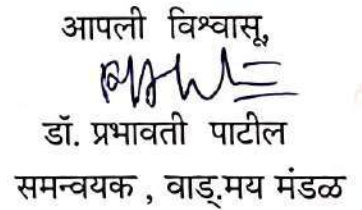 आपली विश्वासू,
डॉ. प्रभावती पाटील
समन्वयक , वाड्.मय मंडळ